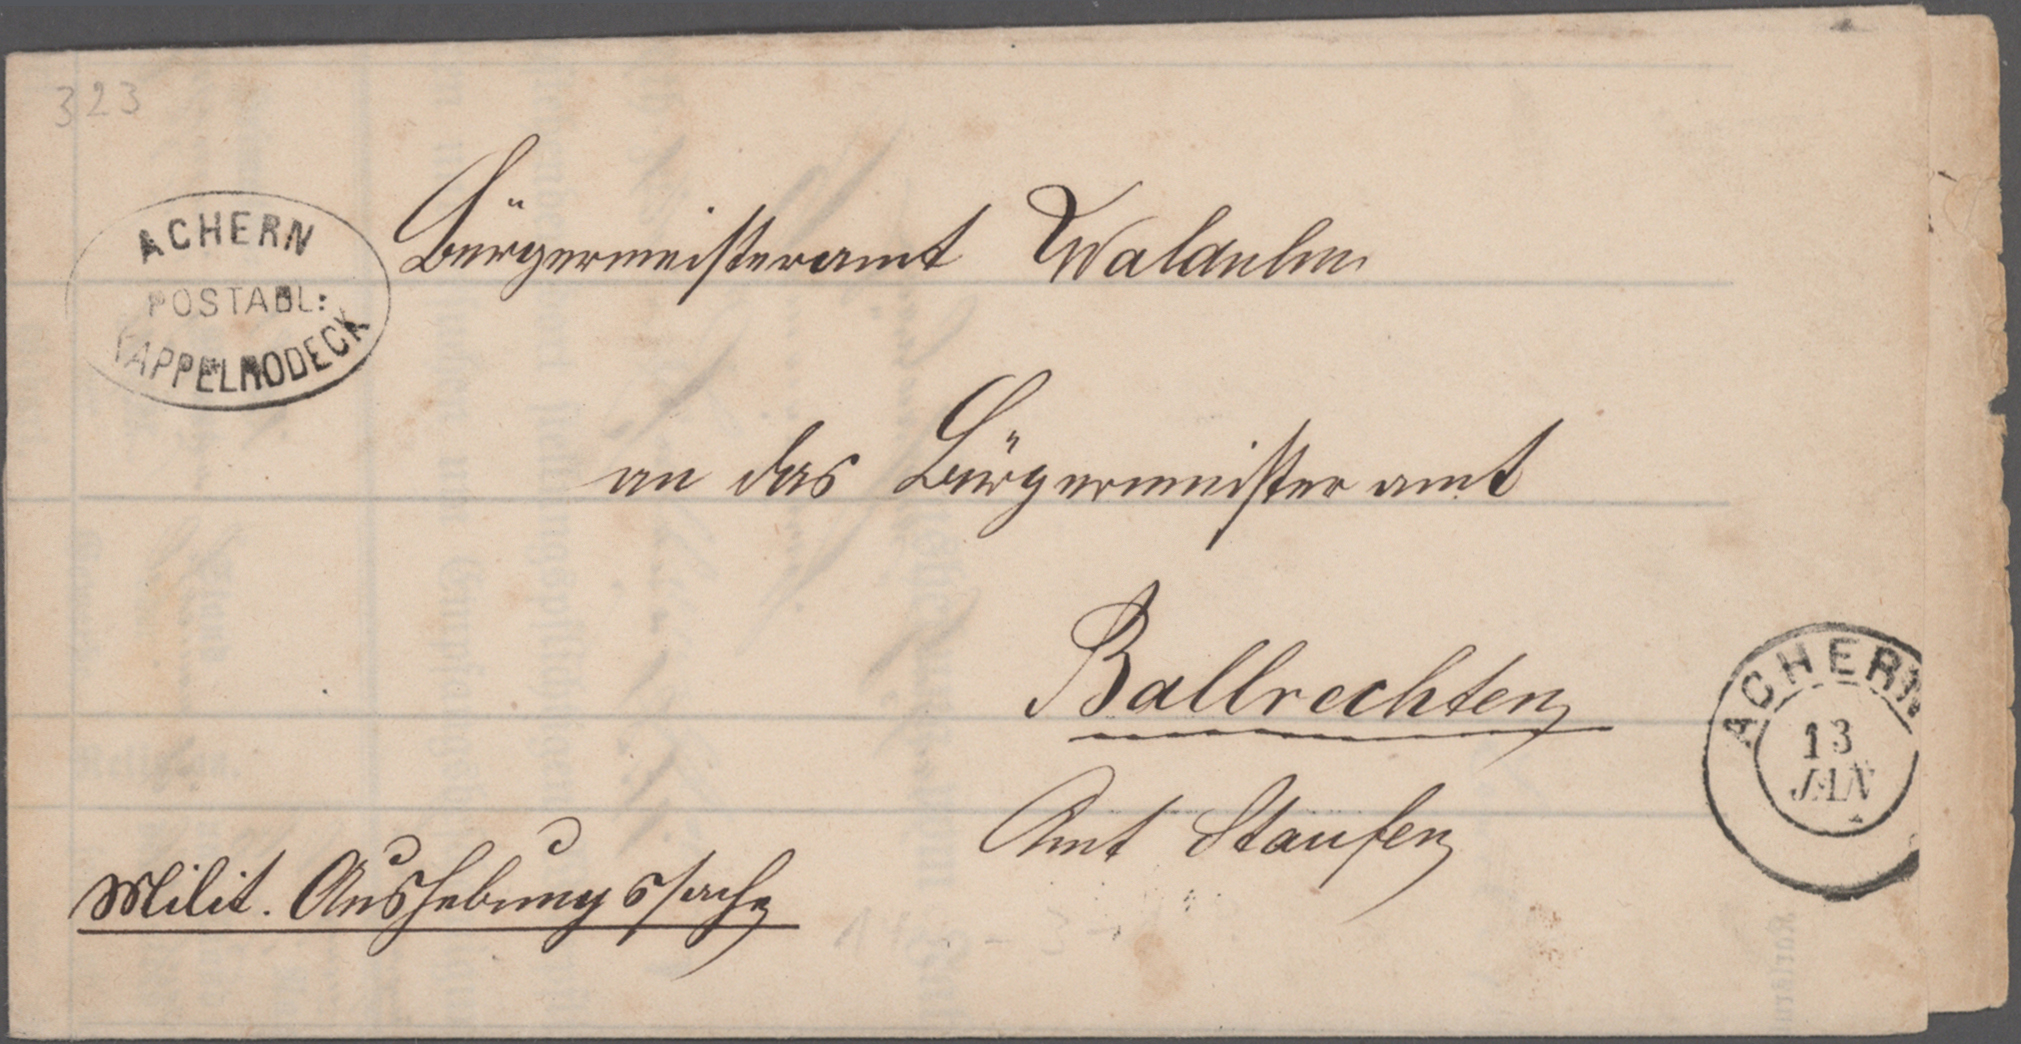 323
ACHERN
POSTABL:
KAPPELRODECK
Bürgermeisteramt Waldulm
an das Bürgermeisteramt
Ballrechten
Amt Staufen
Milit. Aushebungssache
ACHERN
13
JAN